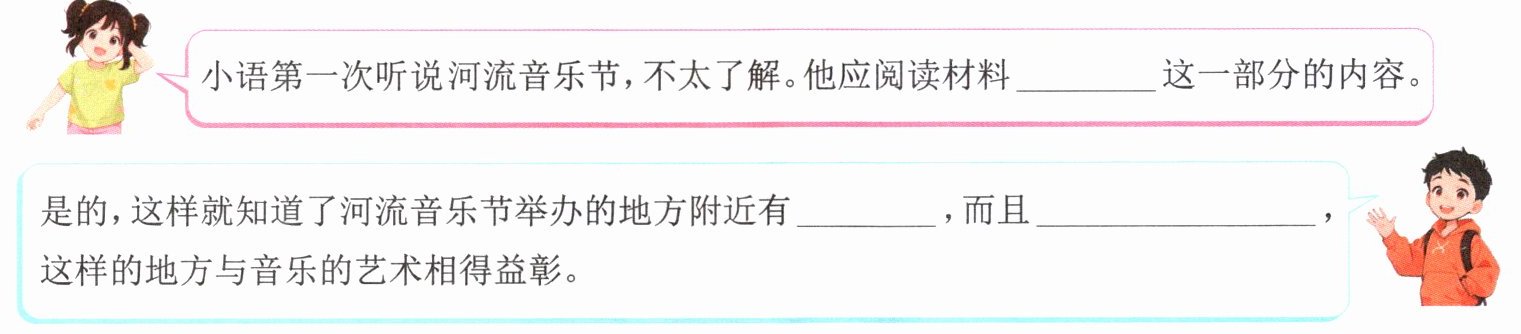 小语第一次听说河流音乐节,不太了解。他应阅读材料________这一部分的内容。
是的,这样就知道了河流音乐节举办的地方附近有________,而且________________,
这样的地方与音乐的艺术相得益彰。